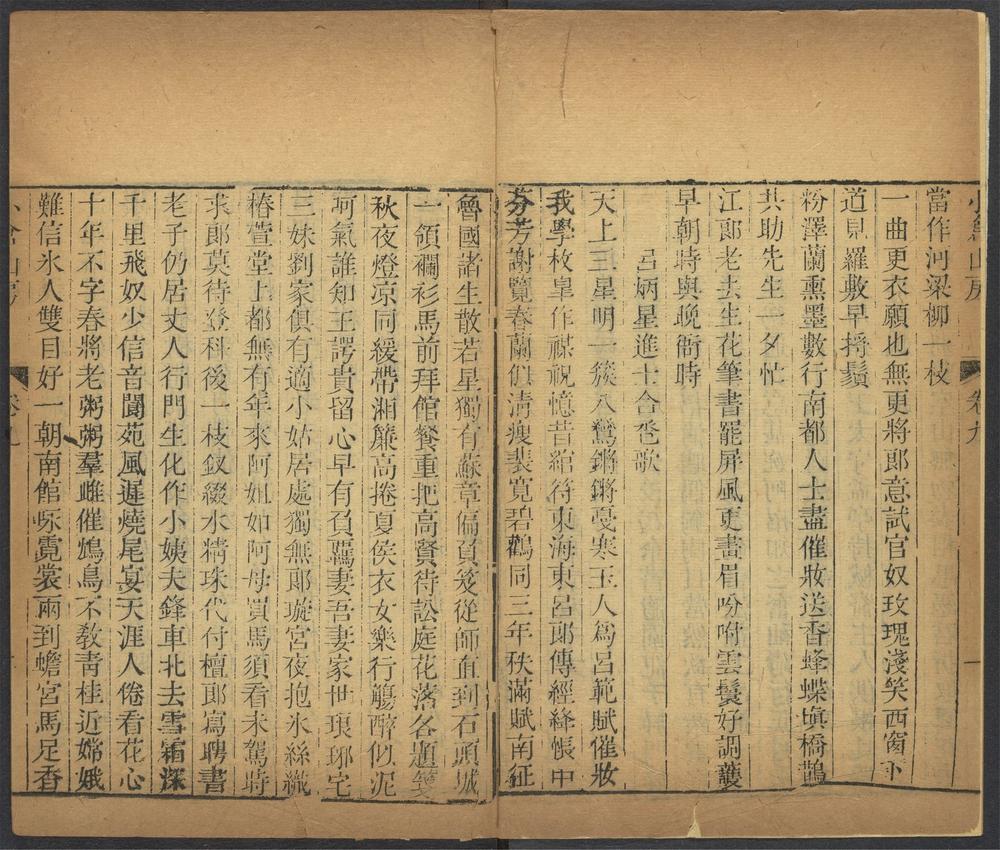 小倉山房 卷九 一
當作河梁柳一枝
一曲更衣願也無更將郎意試官奴玫瑰淺笑西窗下
道是羅敷早捋鬚
粉澤蘭熏墨數行南都人士盡催妝送香蜂蝶塡橋鵲
共助先生一夕忙
江郎老去生花筆書罷屏風更畫眉吩咐雲鬟好調護
早朝時與晚衙時
呂炳星進士合巹歌
天上三星明一簇八鸞鏘鏘戞寒玉人爲呂範賦催妝
我學枚皐作禖祝憶昔綰符東海東呂郎傳經絳帳中
芬芳謝覽春蘭俱清瘦裴寬碧鸛同三年秩滿賦南征
魯國諸生散若星獨有蘇章偏負笈從師直到石頭城
一領襴衫馬前拜館餐重把高賢待訟庭花落各題箋
秋夜燈凉同緩帶湘簾高捲夏侯衣女樂行觴醉似泥
坷氣誰知王諤貴留心早有負羈妻吾妻家世琅琊宅
三妹劉家俱有適小姑居處獨無郎璇宮夜抱氷絲織
椿萱堂上都無有年來阿姐如阿母買馬須看未駕時
求郎莫待登科後一枝釵綴水精珠代付檀郎寫聘書
老子仍居丈人行門生化作小姨夫鋒車北去雪霜深
千里飛奴少信音閬苑風遲燒尾宴天涯人倦看花心
十年不字春將老粥粥羣雌催鴆鳥不敎靑桂近嫦娥
難信氷人雙目好一朝南館咏霓裳兩到蟾宮馬足香
小倉山房 卷九